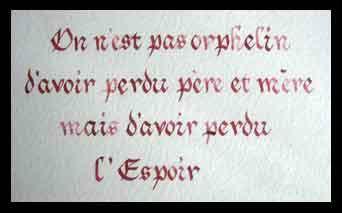 On n'est pas orphelin
d'avoir perdu père et mère
mais d'avoir perdu
l'Espoir